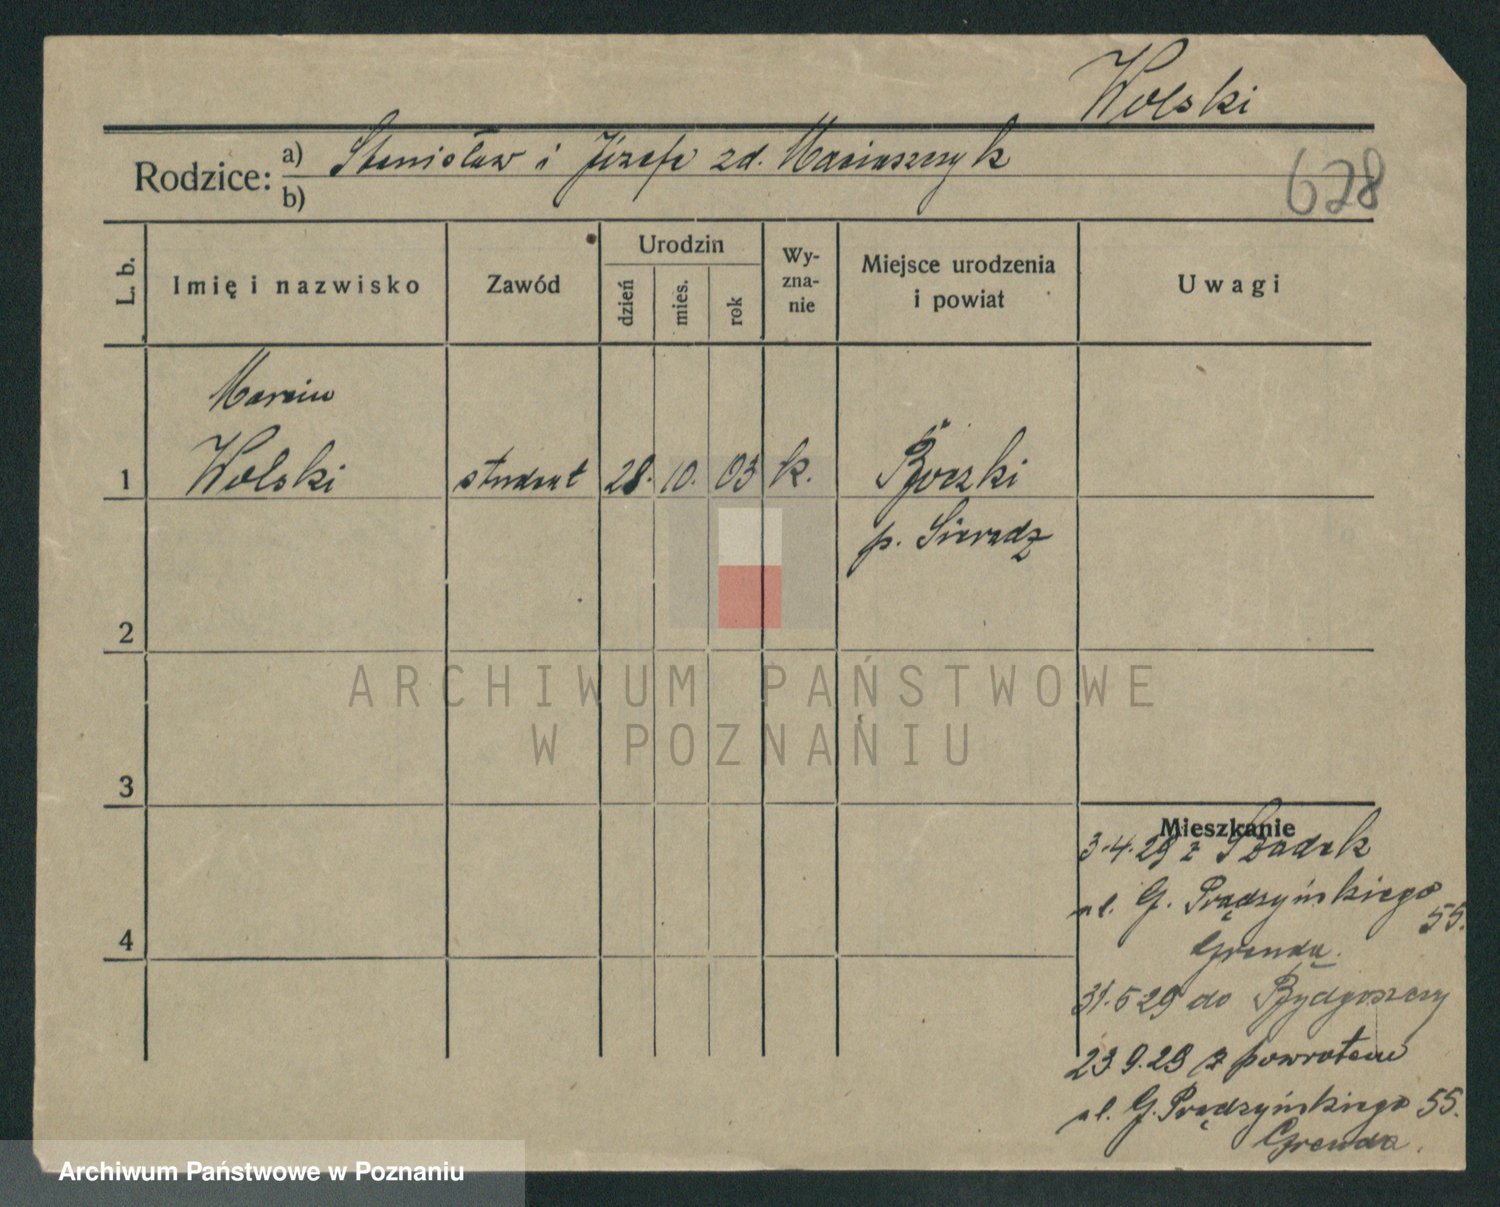 Wolski
Rodzice: a) Stanisław i Józefa zd. Maciaszczyk
b)
678
L. b.
Imię i nazwisko
Zawód
Urodzin
dzień
mies.
rok
Wy-
zna-
nie
Miejsce urodzenia
i powiat
Uwagi
Marcin
1 Wolski student 28. 10. 03 k. Borzki
p. Sieradz
2
ARCHIWUM PAŃSTWOWE
W POZNANIU
3
Mieszkanie
3.4.29 z Szadek
ul. G. Prądzyńskiego
55.
Grenda.
4
31.5 29 do Bydgoszczy
23 9.29 z powrotem
ul. G. Prądzyńskiego 55.
Grenda.
Archiwum Państwowe w Poznaniu